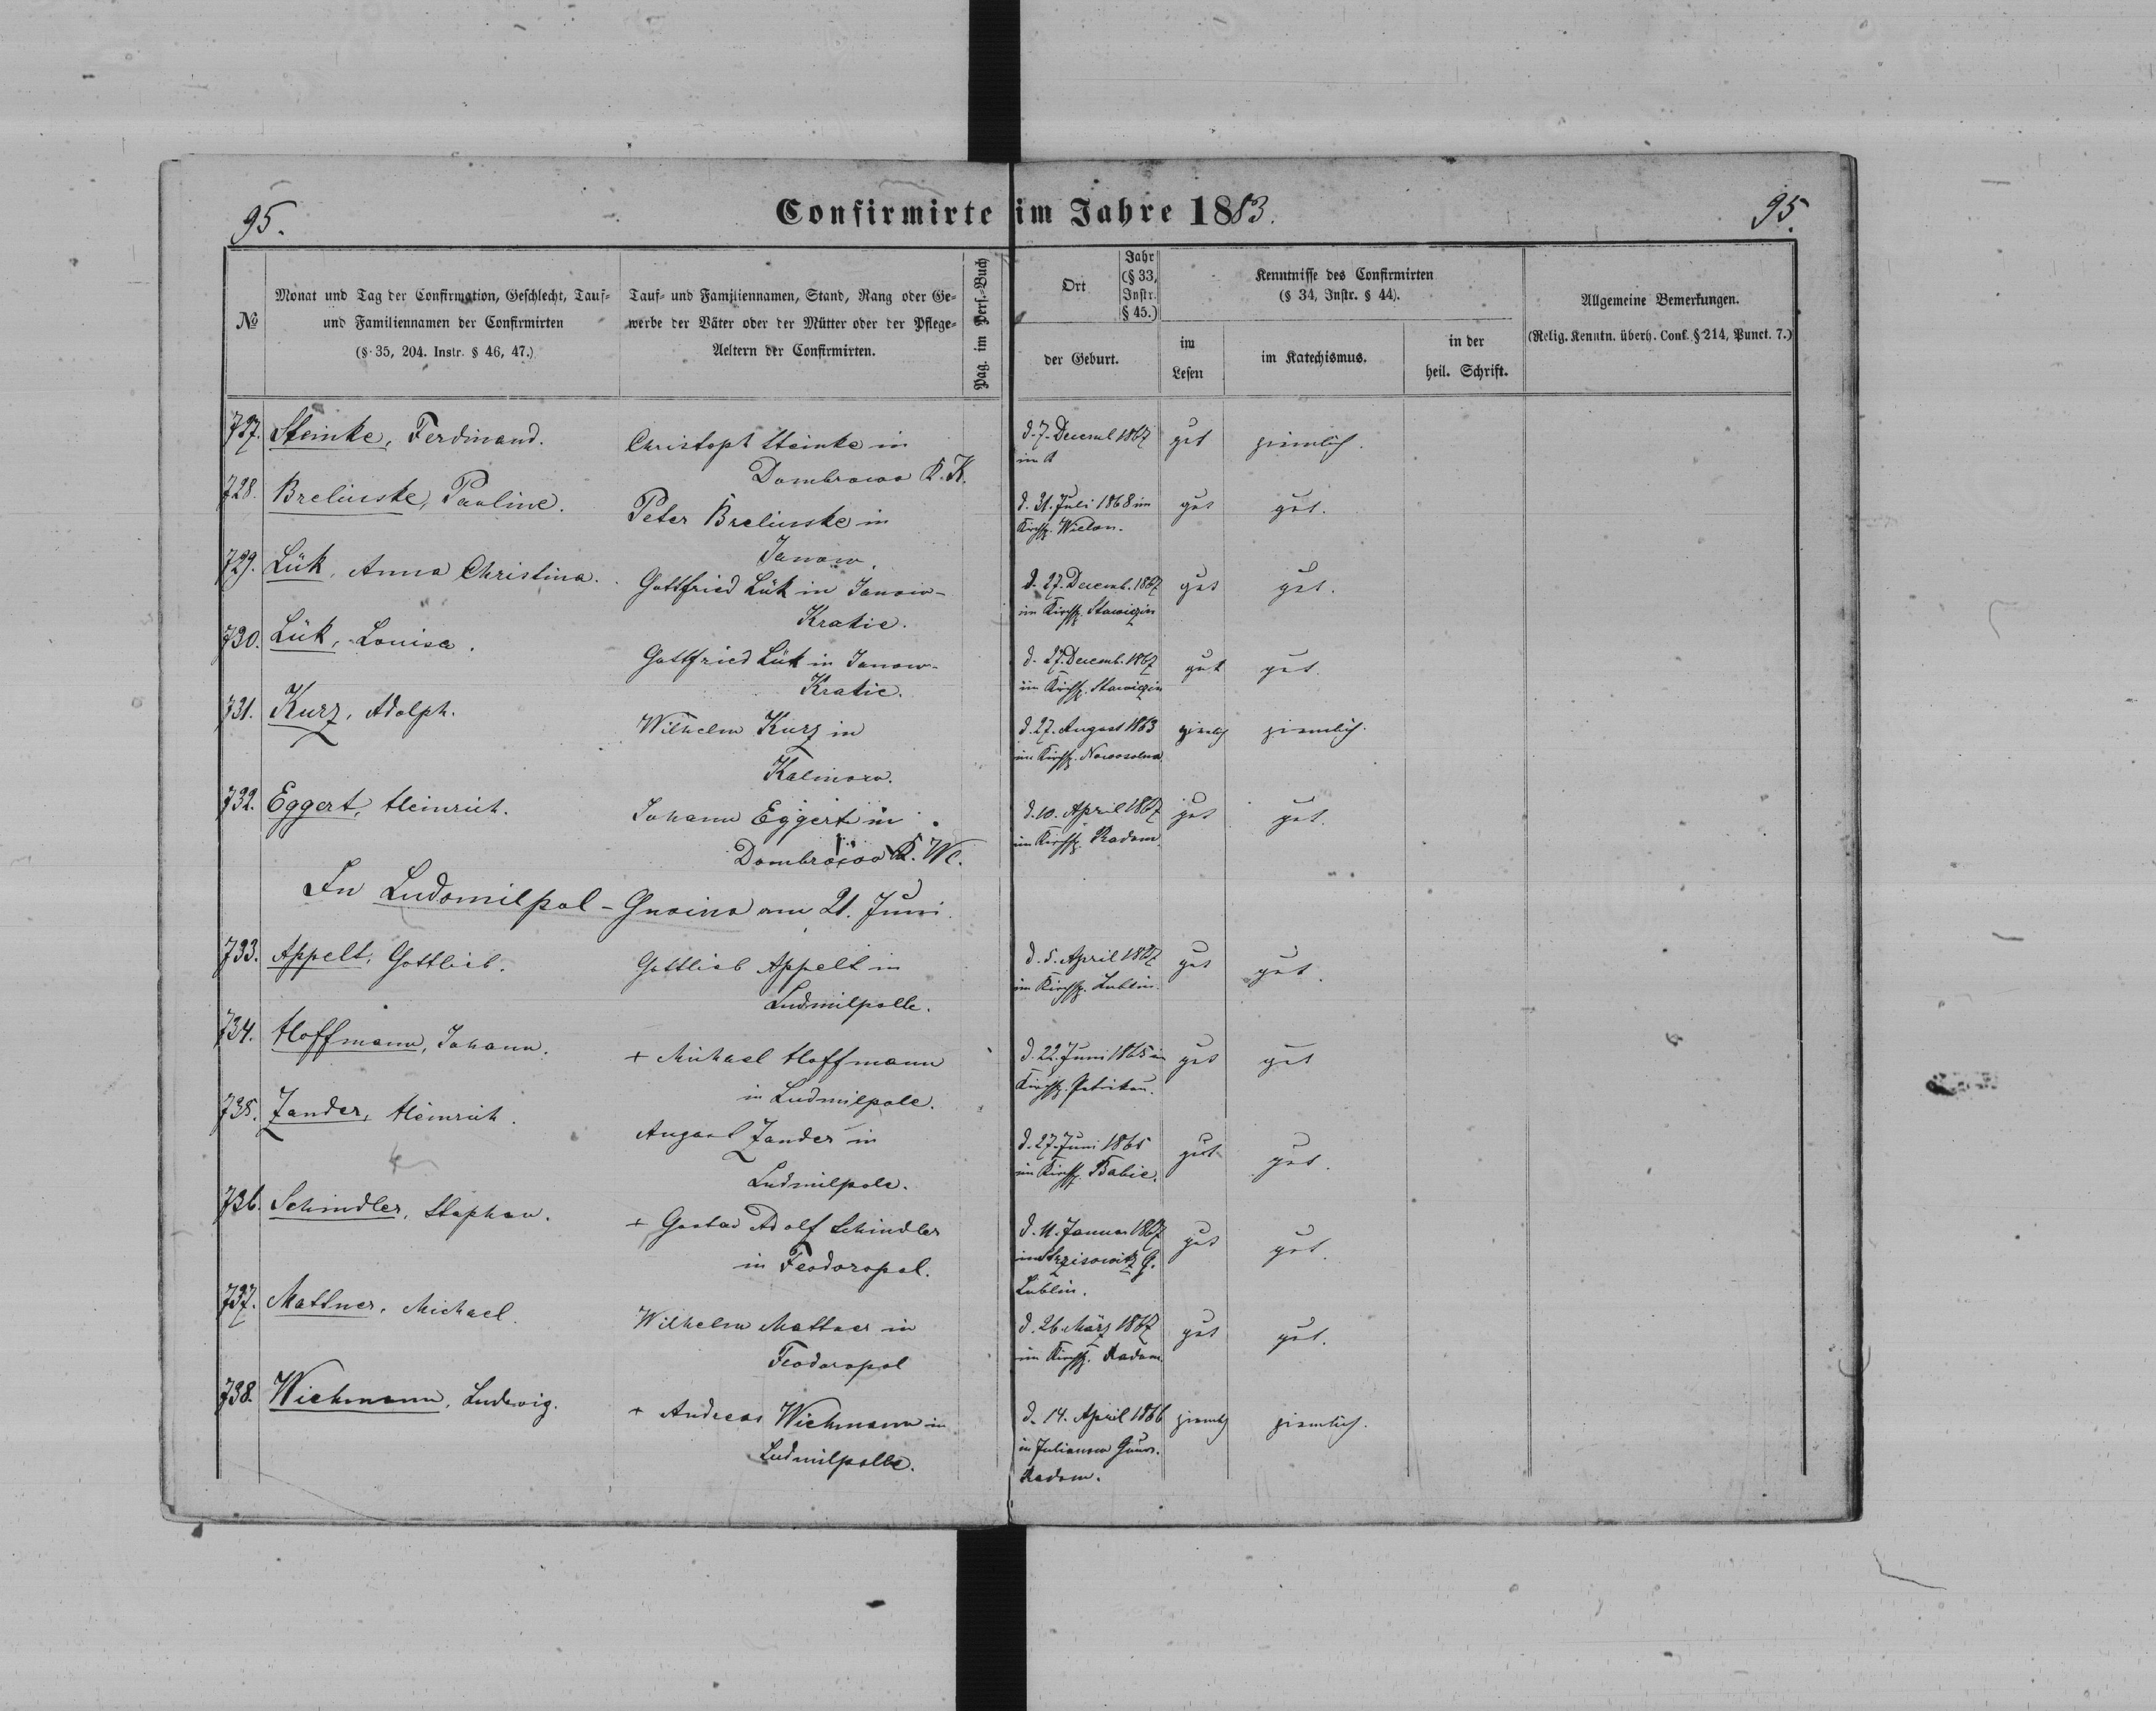 95.
Confirmirte im Jahre 1883.
95.
№
Monat und Tag der Confirmation, Geschlecht, Tauf-
und Familiennamen der Confirmirten
(§ 35, 204. Instr. § 46, 47.)
Tauf- und Familiennamen, Stand, Rang oder Ge-
werbe der Väter oder der Mütter oder der Pflege-
Aeltern der Confirmirten.
Pag. im Pers.-Buch
Ort
Jahr
(§ 33,
Instr.
§ 45.)
der Geburt.
Kenntnisse des Confirmirten
(§ 34, Instr. § 44).
im
Lesen
im Katechismus.
in der
heil. Schrift.
Allgemeine Bemerkungen.
(Relig. Kenntn. überh. Conf. § 214, Punct. 7.)
727. Steinke, Ferdinand.
Christoph Steinke in
Dombrowo K. K.
d. 7. Decemb 1867
in
gut ziemlich.
728. Brelinske, Pauline.
Peter Brelinske in
Janow.
d. 31. Juli 1868 im
Kirchsp. Wielon.
gut gut.
729. Lük, Anna Christina.
Gottfried Lük in Janow-
Kratie.
d. 27. Decemb. 1867
im Kirchsp. Stawiczin
gut gut.
730. Lük, Louise.
Gottfried Lük in Janow-
Kratie.
d. 27. Decemb. 1867
im Kirchsp. Stawiczin
gut gut.
731. Kurz, Adolph.
Wilhelm Kurz in
Kalinow.
d. 27. August 1863
im Kirchsp. Nowosolna
ziemlich ziemlich.
732. Eggert, Heinrich.
Johann Eggert in
Dombrowo K. W.
d. 10. April 1867
im Kirchsp. Radom.
gut gut.
In Ludomilpol - Gnoino am 21. Juni.
733. Appelt, Gottlieb.
Gottlieb Appelt in
Ludmilpolle.
d. 5. April 1867
im Kirchsp. Lublin.
gut gut.
734. Hoffmann, Johann.
+ Michael Hoffmann
in Ludmilpole.
d. 22. Juni 1865 in
Kirchsp. Petrikau.
gut gut
735. Zander, Heinrich.
August Zander in
Ludmilpole.
d. 27. Juni 1865
im Kirchsp. Babie.
gut gut.
736. Schindler, Stephan.
+ Gustav Adolf Schindler
in Feodoropol.
d. 11. Januar 1867
in G.
Lublin.
gut gut.
737. Mattner, Michael.
Wilhelm Mattner in
Feodoropol
d. 26. März 1867
im Kirchsp. Radom.
gut gut.
738. Wichmann, Ludwig.
+ Andreas Wichmann in
Ludmilpolle.
d. 14. April 1866
in Julianow Guver.
Radom.
ziemlich ziemlich.